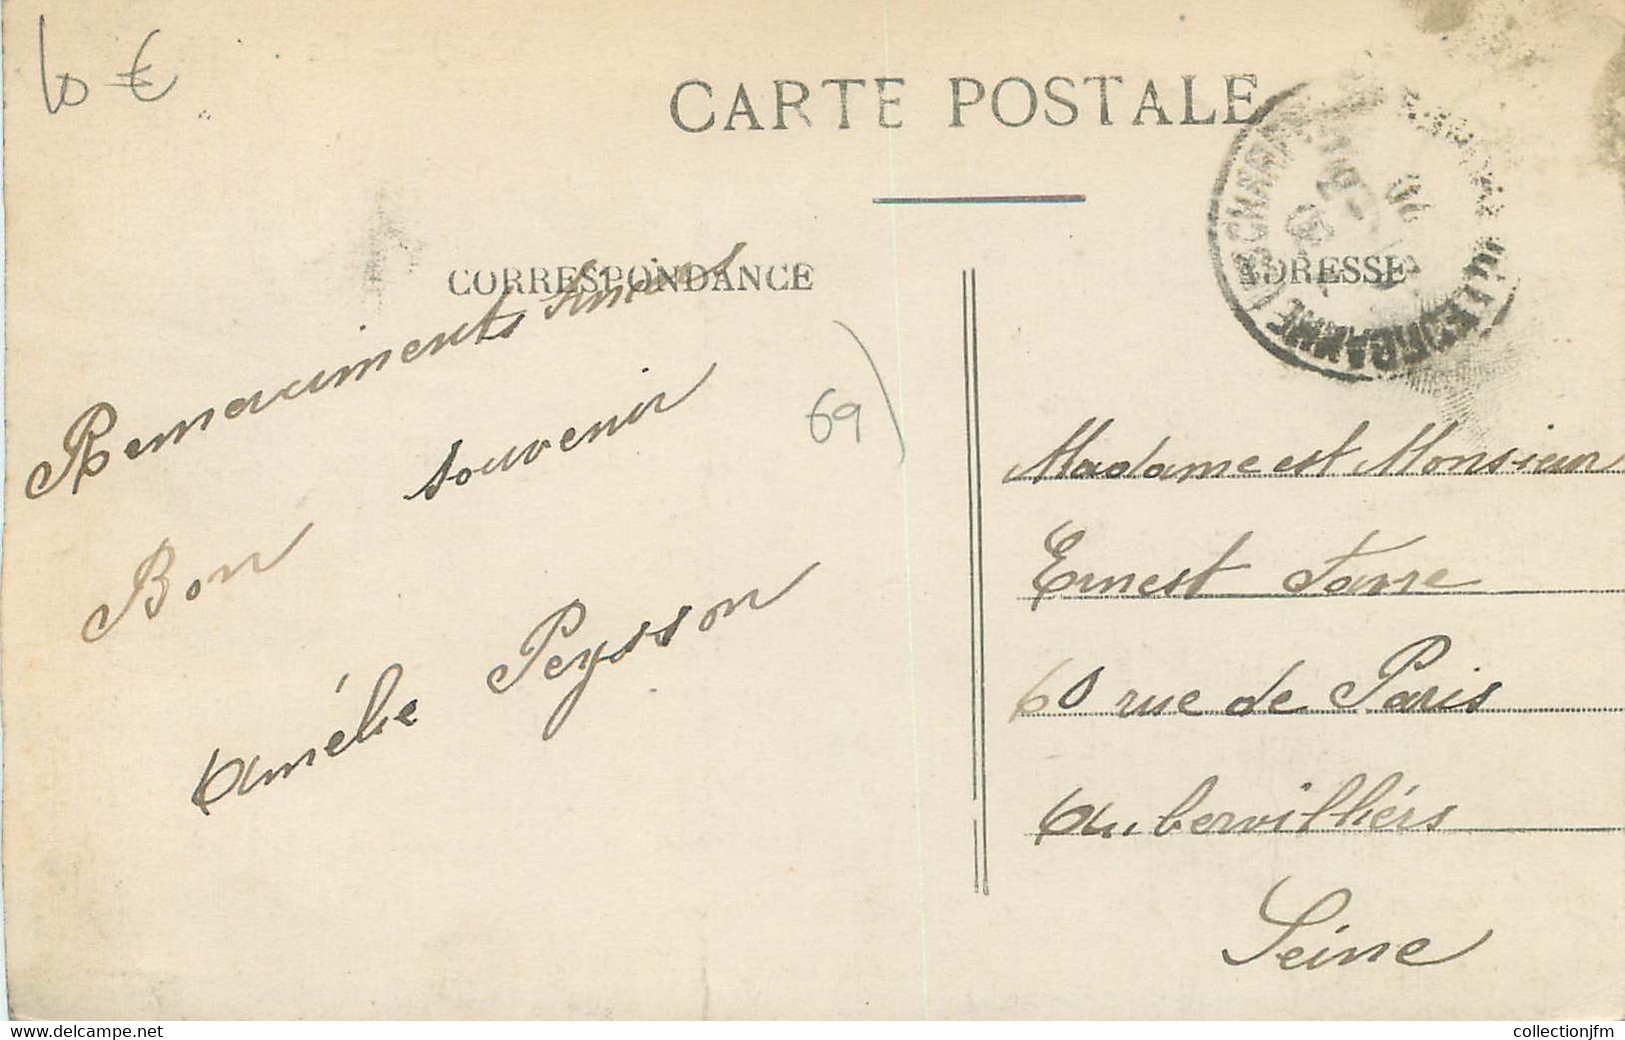 10 €
CARTE POSTALE
CORRESPONDANCE
ADRESSE
Remerciments
Bon souvenir
Amélie Peysson
69
Madame est Monsieur
Ernest
60 rue de Paris
Aubervilliérs
Seine
www.delcampe.net
collectionjfm